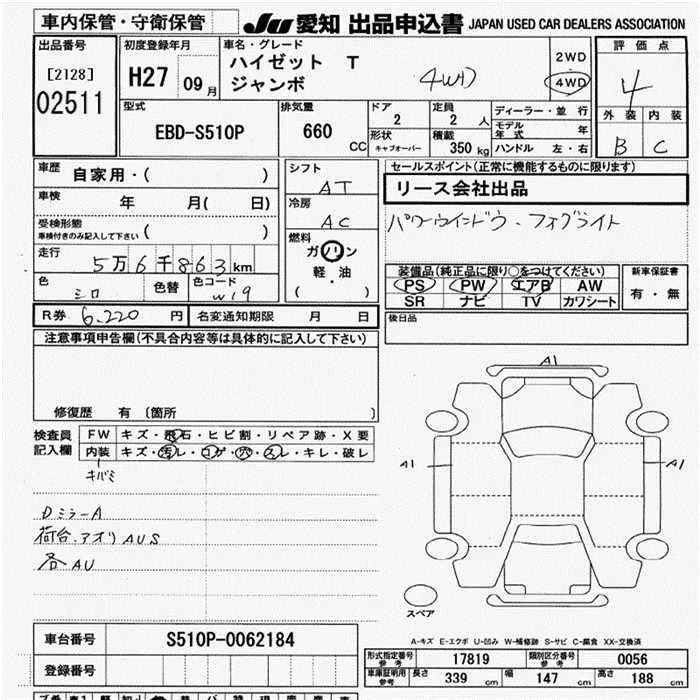 車内保管・守衛保管
JU 愛知 出品申込書 JAPAN USED CAR DEALERS ASSOCIATION
出品番号
[2128]
02511
初度登録年月
H27 09月
車名・グレード
ハイゼット T
ジャンボ
4WD
2WD
4WD
評価点
4
外装 内装
B C
型式
EBD-S510P
排気量
660 CC
ドア
2
形状
キャブオーバー
定員
2 人
積載
350 kg
ディーラー・並行
モデル年式 年
ハンドル 左・右
車歴
自家用・( )
車検
年 月( 日)
受検形態
車検付きのみ記入して下さい ( )
走行
5万6千863km
色
シロ
色替
色コード
W19
シフト
AT
冷房
AC
燃料
ガソリン
軽・油
( )
セールスポイント(正常に機能するものに限ります)
リース会社出品
パワーウインドウ・フォグライト
装備品(純正品に限り○をつけてください)
PS PW エアB AW
SR ナビ TV カワシート
新車保証書
有・無
後日品
R券 6.220 円 名変通知期限 月 日
注意事項申告欄(不具合内容等は具体的に記入して下さい)
修復歴 有〔箇所 〕
検査員記入欄
FW キズ・飛石・ヒビ割・リペア跡・X要
内装 キズ・汚レ・コゲ・穴・スレ・キレ・破レ
キバミ
DミラーA
荷台.アオリAUS
各AU
A1
A1
A1
スペア
A-キズ E-エクボ U-凹み W-補修跡 S-サビ C-腐食 XX-交換済
車台番号 S510P-0062184
登録番号
形式指定番号 参考 17819 類別区分番号 参考 0056
車庫証明用 参考 長さ 339 cm 幅 147 cm 高さ 188 cm